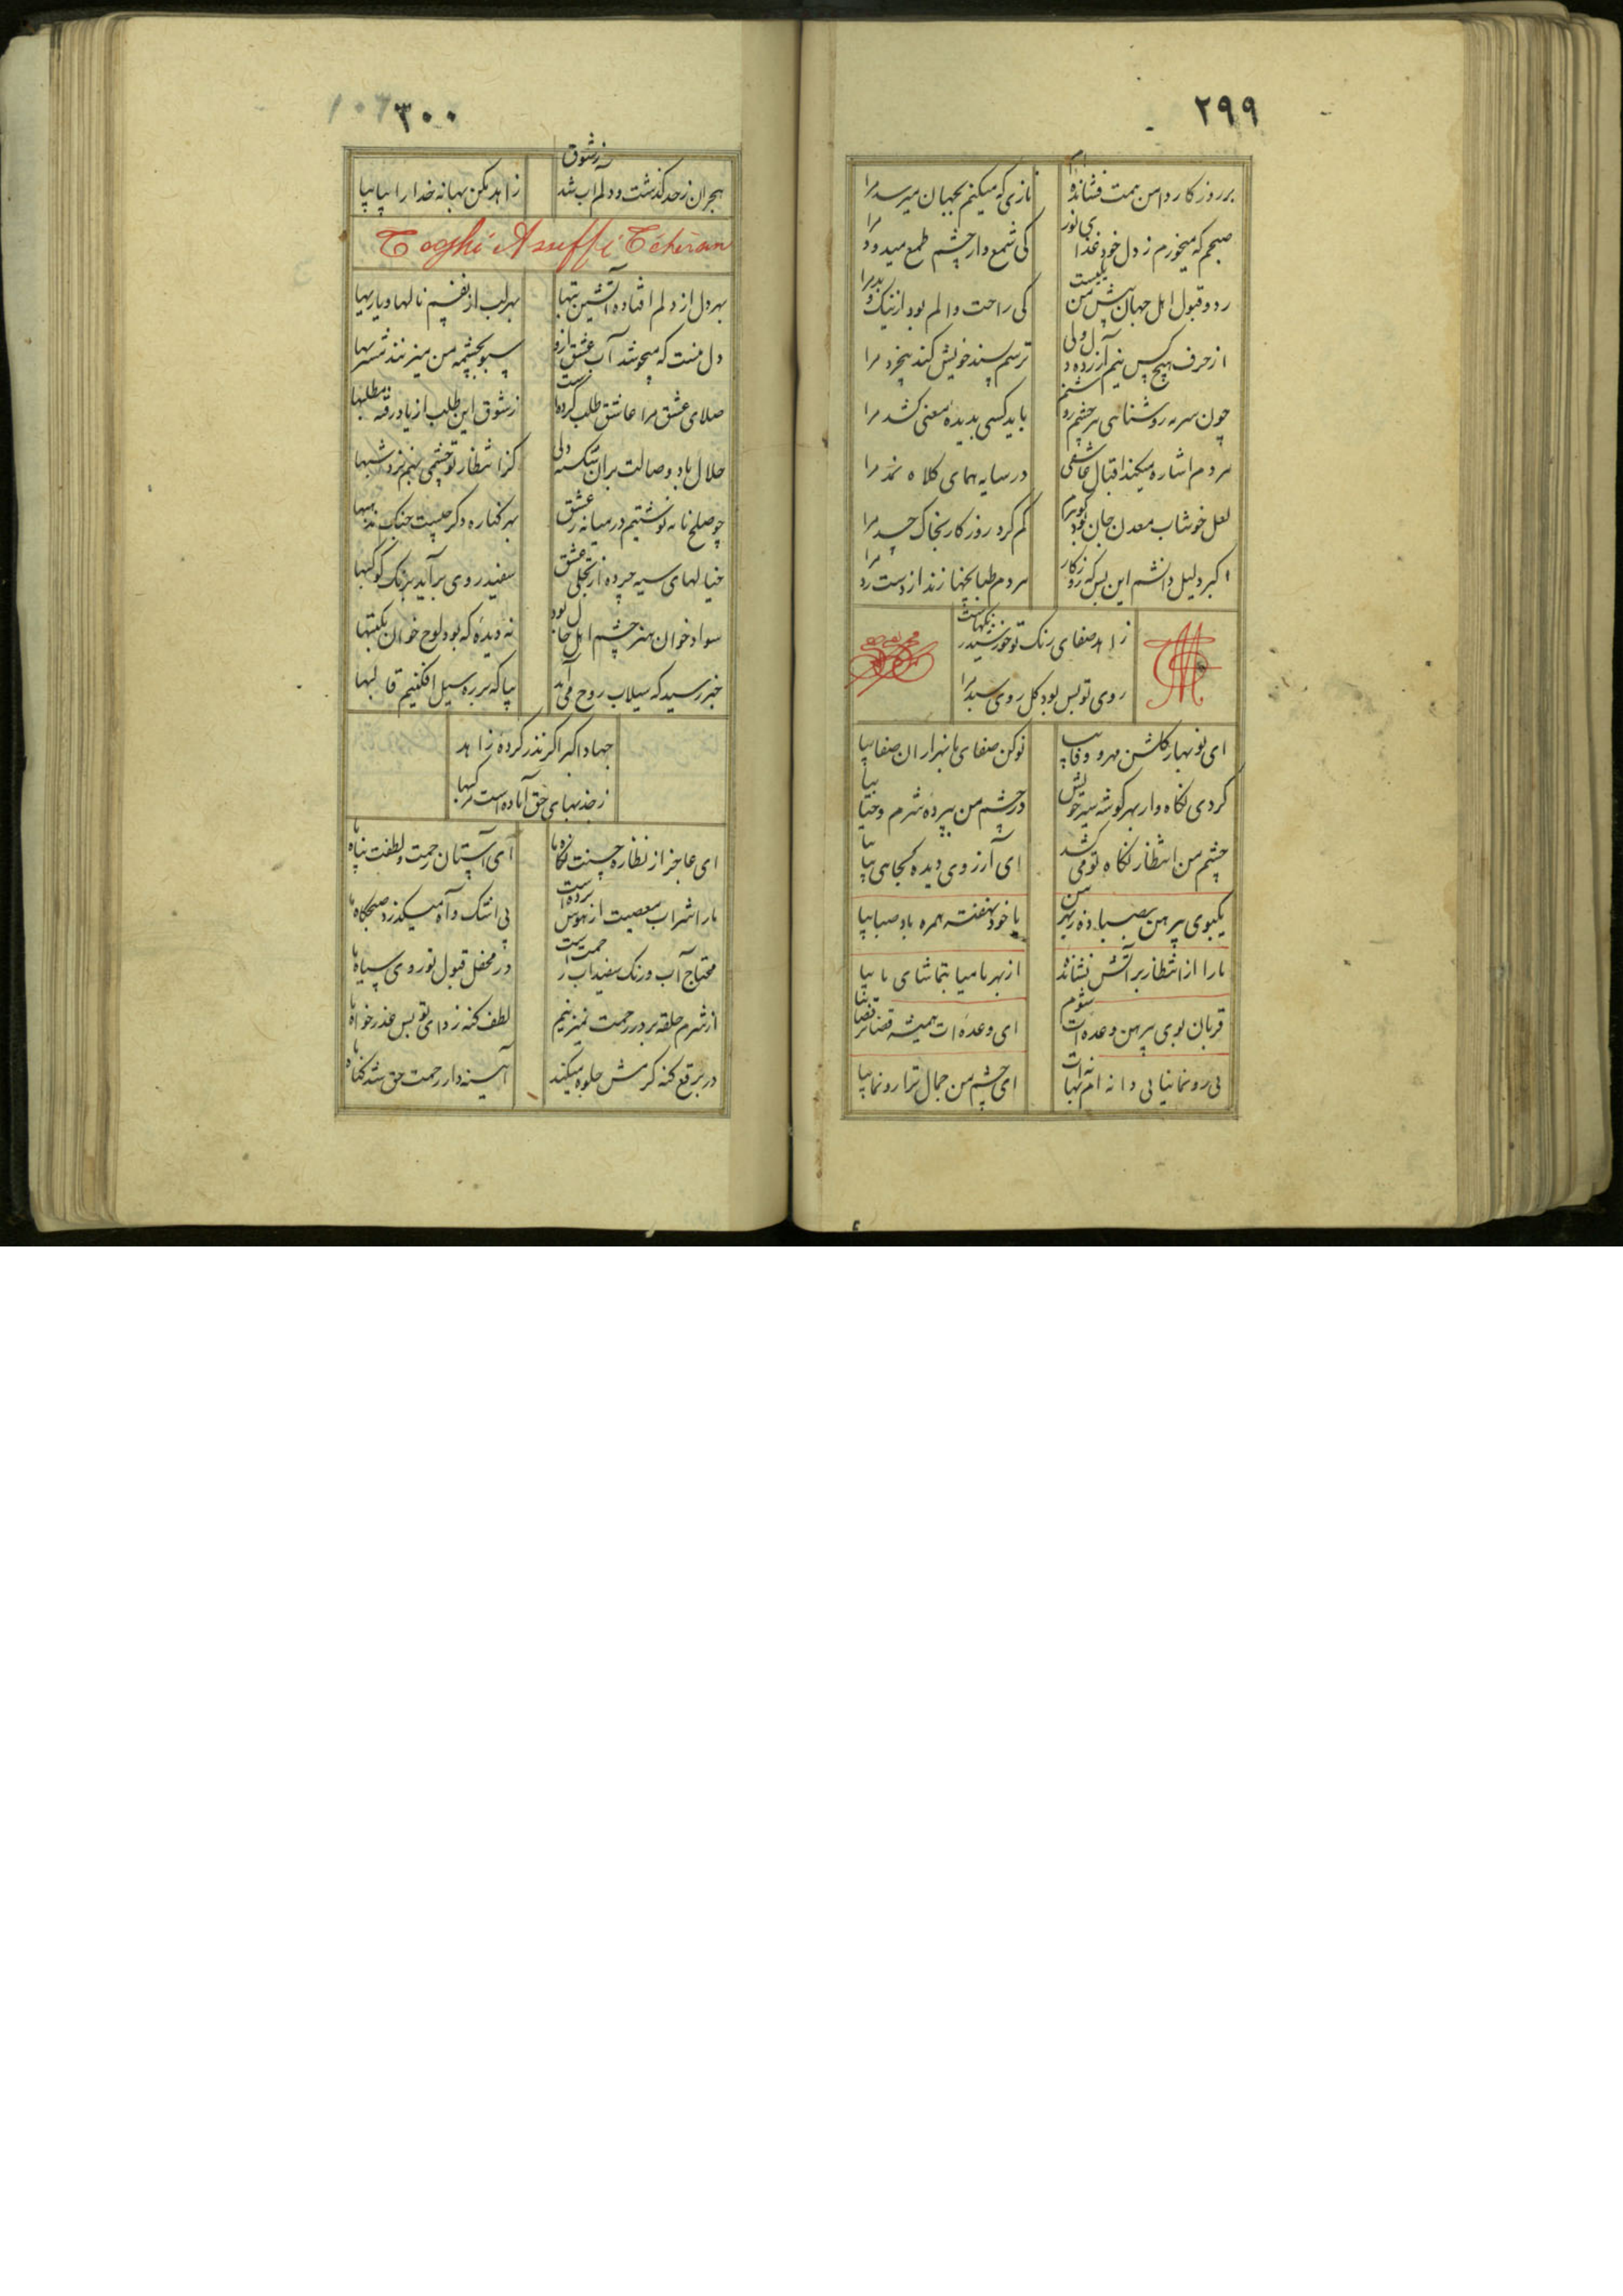 ۲۹۹
بر روزگار دامن همت فشانده‌ام
نازی که میکنم بجهان میرسد مرا
صبحم که میخورم ز دل خود غذای نور
کی شمع وار چشم طمع میدود مرا
رد و قبول اهل جهان پیش من یکیست
کی راحت و الم بود از نیک و بد مرا
از حرف هیچ کس نیم آزرده دل ولی
ترسم پسند خویش کند بیخرد مرا
چون سرمه روشناهی هر چشم روشنم
باید کسی بدیده معنی کشد مرا
مردم اشاره میکند اقبال عاشقی
در سایه همای کلاه نمد مرا
لعل خوشاب معدن جان بود گوهرم
کم کرد روزگار بخاک جسد مرا
اکبر دلیل دانشم این بس که روزگار
هر دم طبانچها زند از دست رد مرا
زاهد صفای رنگ تو خورشید
روی تو بس بود گل روی سبد مرا
ای نو بهار گلشن مهر و وفا بیا
نوکن صفای ما بهزاران صفا بیا
کردی نگاه وار بهر گوشه سیر خویش
در چشم من بپرده شرم و حیا بیا
چشم من انتظار نگاه تو می کشد
ای آرزوی دیده کجاهی بیا بیا
یکبوی پیرهن بصبا ده ز بهر من
با خود نهفته همره باد صبا بیا
ما را از انتظار بر آتش نشانده
از بهر ما میا بتماشای ما بیا
قربان بوی پیرهن وعده‌ات شوم
ای وعده‌ات همیشه قضا بر قضا بیا
بی رونما نیایی و دانه ام بهانه‌ات
ای چشم من جمال ترا رونما بیا
۳۰۰
هجران ز حد گذشت و دلم آب شد ز شوق
زاهد مکن بهانه خدا را بیا بیا
Toghi Assuffi Téhéran
بهر دل از دلم افتاده آتشین تبها
بهر لب از نفسم نالها و یاربها
دل منست که میجوشد آب عشق ازو
سبو بچشمه من میزنند مشربها
صلای عشق مرا عاشق طلب کرده است
ز شوق این طلب از یاد رفته مطلبها
حلال باد وصالت بر ان شکسته دلی
کز انتظار تو چشمی بهم نزد شبها
چو صلح نامه نوشتیم در میانه عشق
بهر کناره دگر چیست جنگ مذهبها
خیالهای سیه چرده از تجلی عشق
سفید روی برآید برنگ کوکبها
سواد خوان هنر چشم اهل حال بود
نه دیده که بود لوح خوان مکتبها
خبر رسید که سیلاب روح می آید
بیا که بر ره سیل افکنیم قالبها
جهاد اکبر اگر نذر کرده زاهد
ز جذبهای حق آماده است مرکبها
ای عاجز از نظاره حسنت نگاه ما
ای آستان رحمت و لطفت پناه ما
ما را شراب معصیت از هوش برده است
بی اشک و آه میگذرد صبحگاه ما
محتاج آب و رنگ سفیداب رحمت است
در محفل قبول تو روی سیاه ما
از شرم حلقه بر در رحمت نمیزنیم
لطف گنه زدای تو بس عذر خواه ما
در برقع گنه کرمش جلوه میکند
آیینه دار رحمت حق شد گناه ما